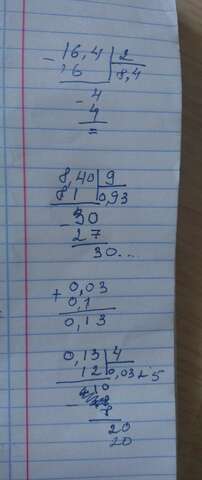 - 16,4 | 2
16 8,4
4
- 4
=
8,40 | 9
8 1 0,93
- 30
27
30...
+ 0,03
0,1
0,13
0,13 | 4
12 0,03 25
10
- 8
20
20